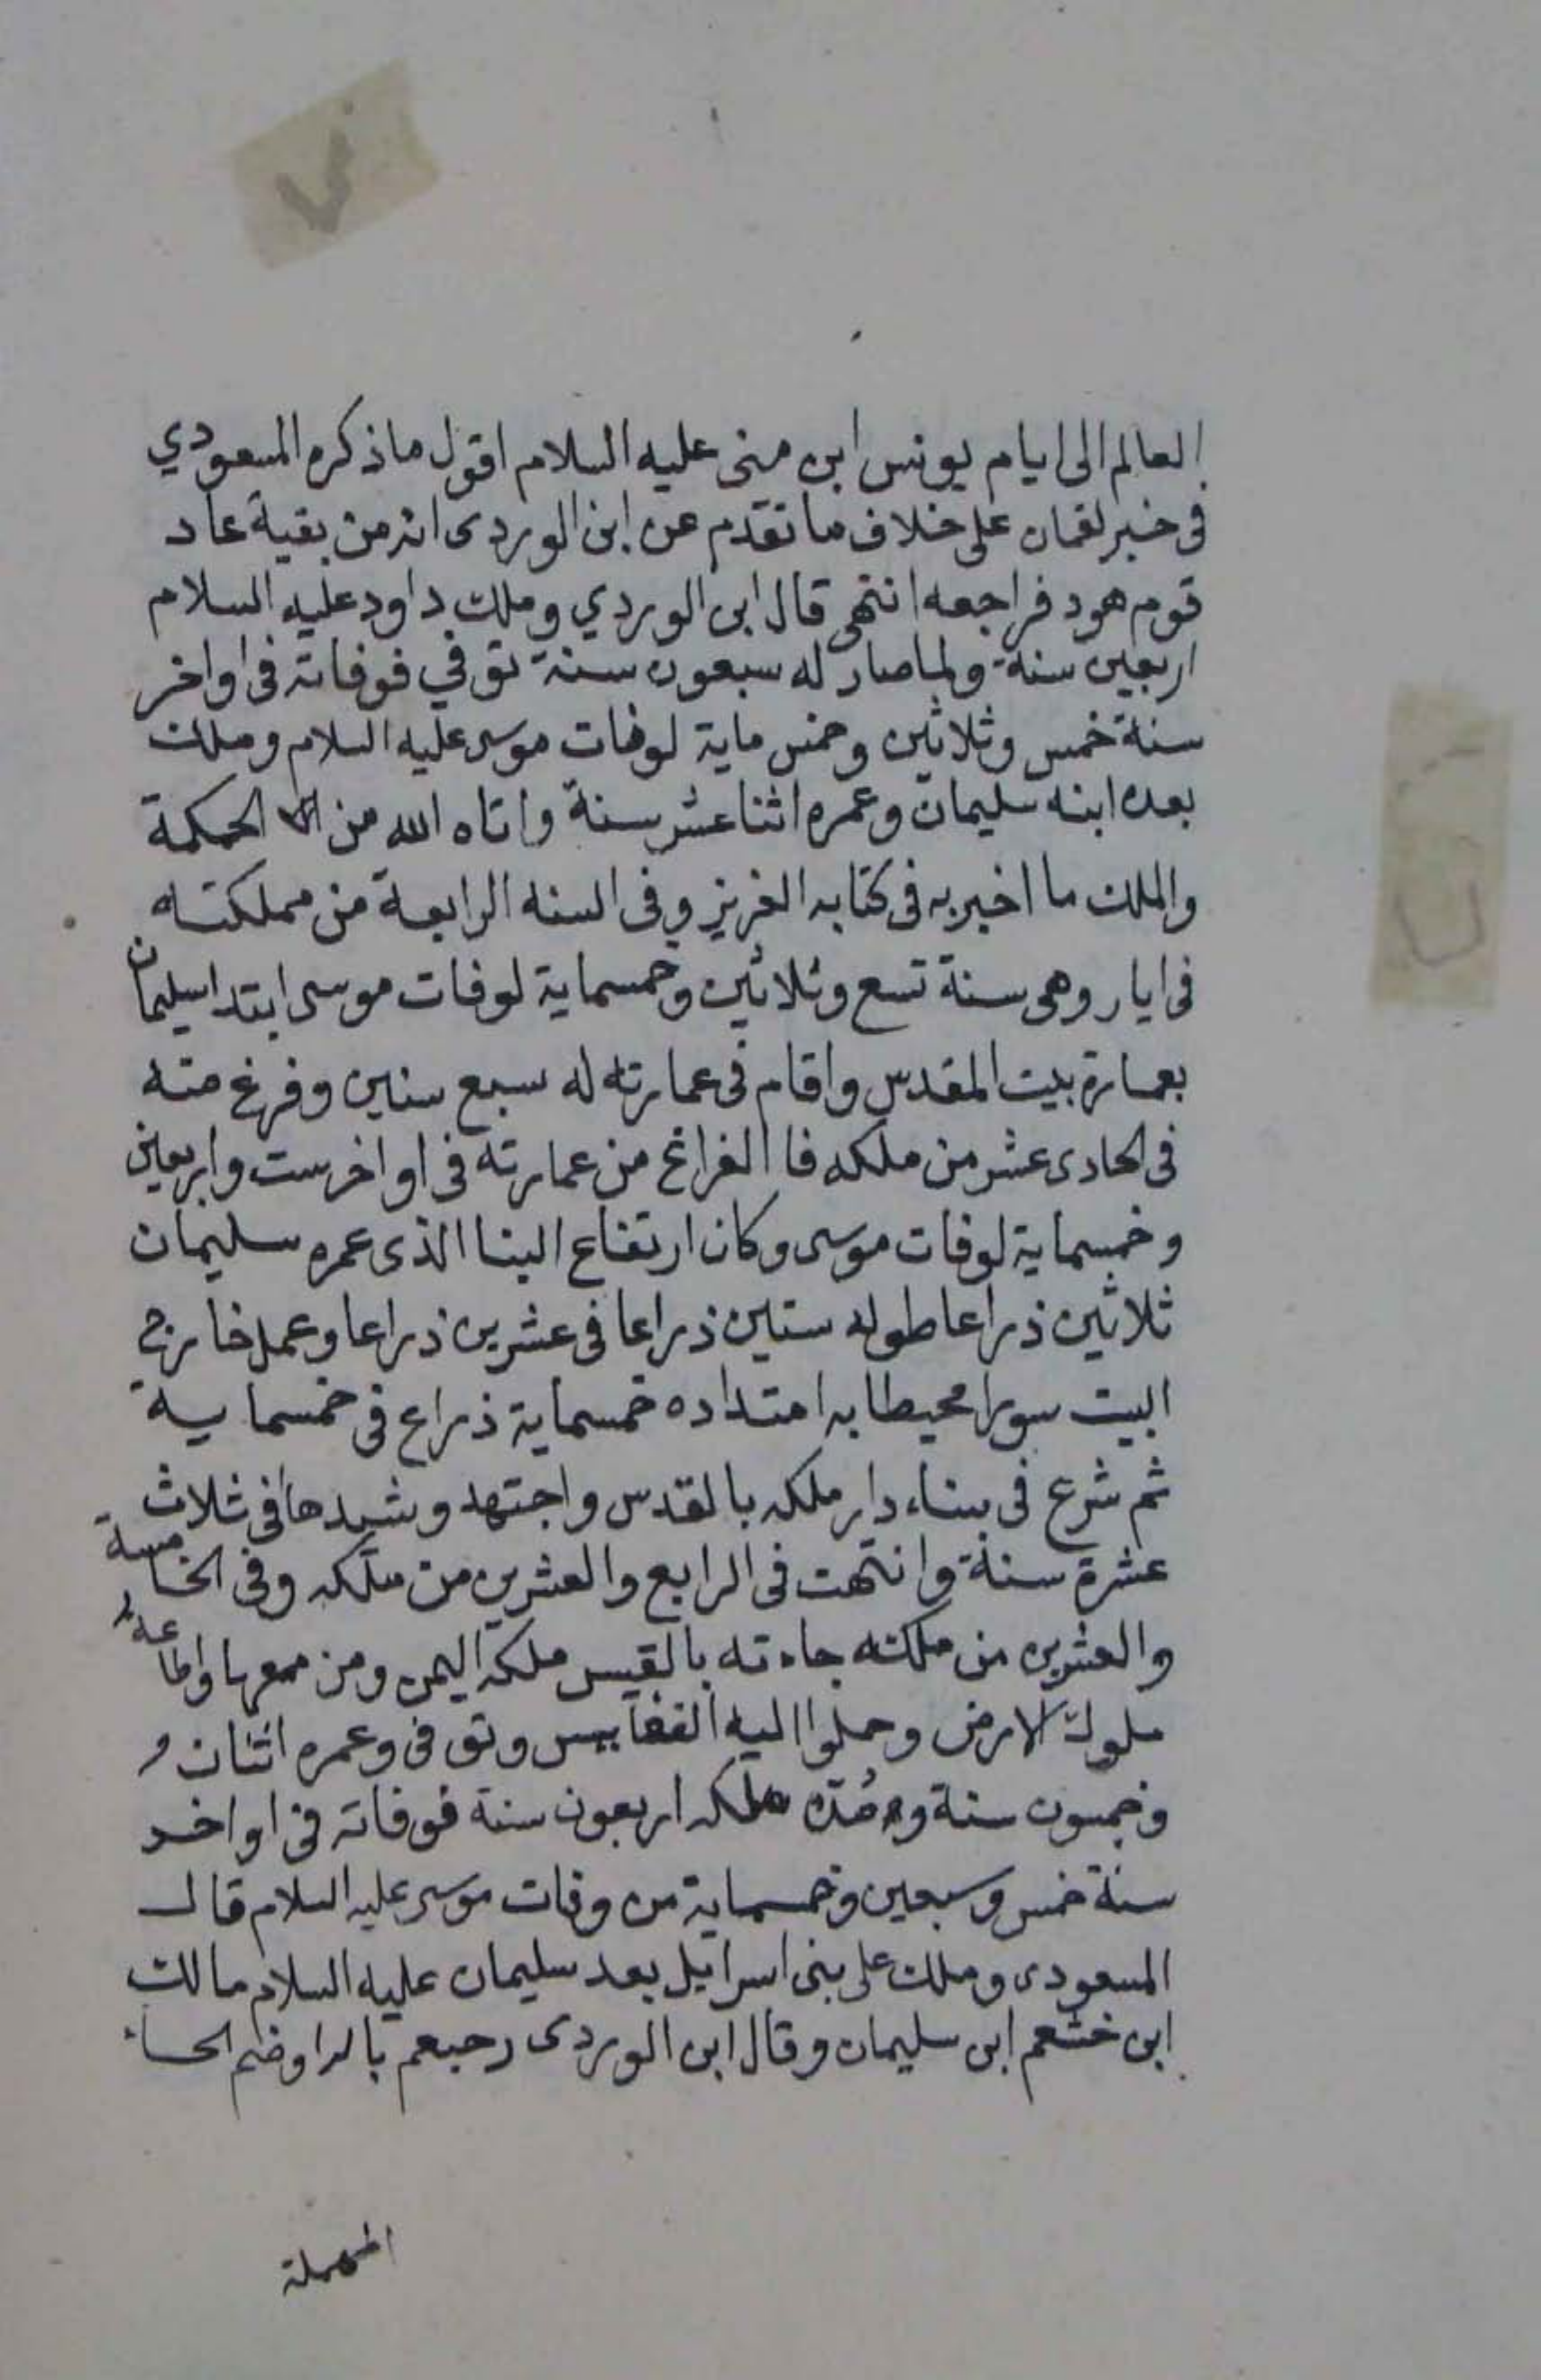 العالم الى ايام يونس ابن متى عليه السلام اقول ما ذكره المسعودي
فى خبر لقمان على خلاف ما تقدم عن ابن الوردى انه من بقية عاد
قوم هود فراجعه انتهى قال ابن الوردي وملك داود عليه السلام
اربعين سنة ولما صار له سبعون سنة توفي فوفاته فى اواخر
سنة خمس وثلاثين وخمس ماية لوفات موسى عليه السلام وملك
بعده ابنه سليمان وعمره اثنا عشر سنة واتاه الله من الحكمة
والملك ما اخبر به فى كتابه العزيز وفى السنه الرابعة من مملكته
فى ايار وهى سنة تسع وثلاثين وخمسماية لوفات موسى ابتدا سليمان
بعمارة بيت المقدس واقام فى عمارته له سبع سنين وفرغ منه
فى الحادى عشر من ملكه فا الفراغ من عمارته فى اواخر ست واربعين
وخمسماية لوفات موسى وكان ارتفاع البنا الذى عمره سليمان
ثلاثين ذراعا طوله ستين ذراعا فى عشرين ذراعا وعمل خارج
البيت سورا محيطا به امتداده خمسماية ذراع فى خمسماية
ثم شرع فى بناء دار ملكه بالقدس واجتهد وشيدها فى ثلاث
عشرة سنة وانتهت فى الرابع والعشرين من ملكه وفى الخامسة
والعشرين من ملكته جاءته بالقيس ملكه اليمن ومن معها واطاعه
ملوك الارض وحملوا اليه النفايس وتوفى وعمره اثنان و
وخمسون سنة ومُدّه ملكه اربعون سنة فوفاته فى اواخر
سنة خمس وسبعين وخمسماية من وفات موسى عليه السلام قال
المسعودى وملك على بنى اسرايل بعد سليمان عليه السلام مالك
ابن خثعم ابن سليمان وقال ابن الوردى رحبعم بالرا وضم الحاء
المهملة